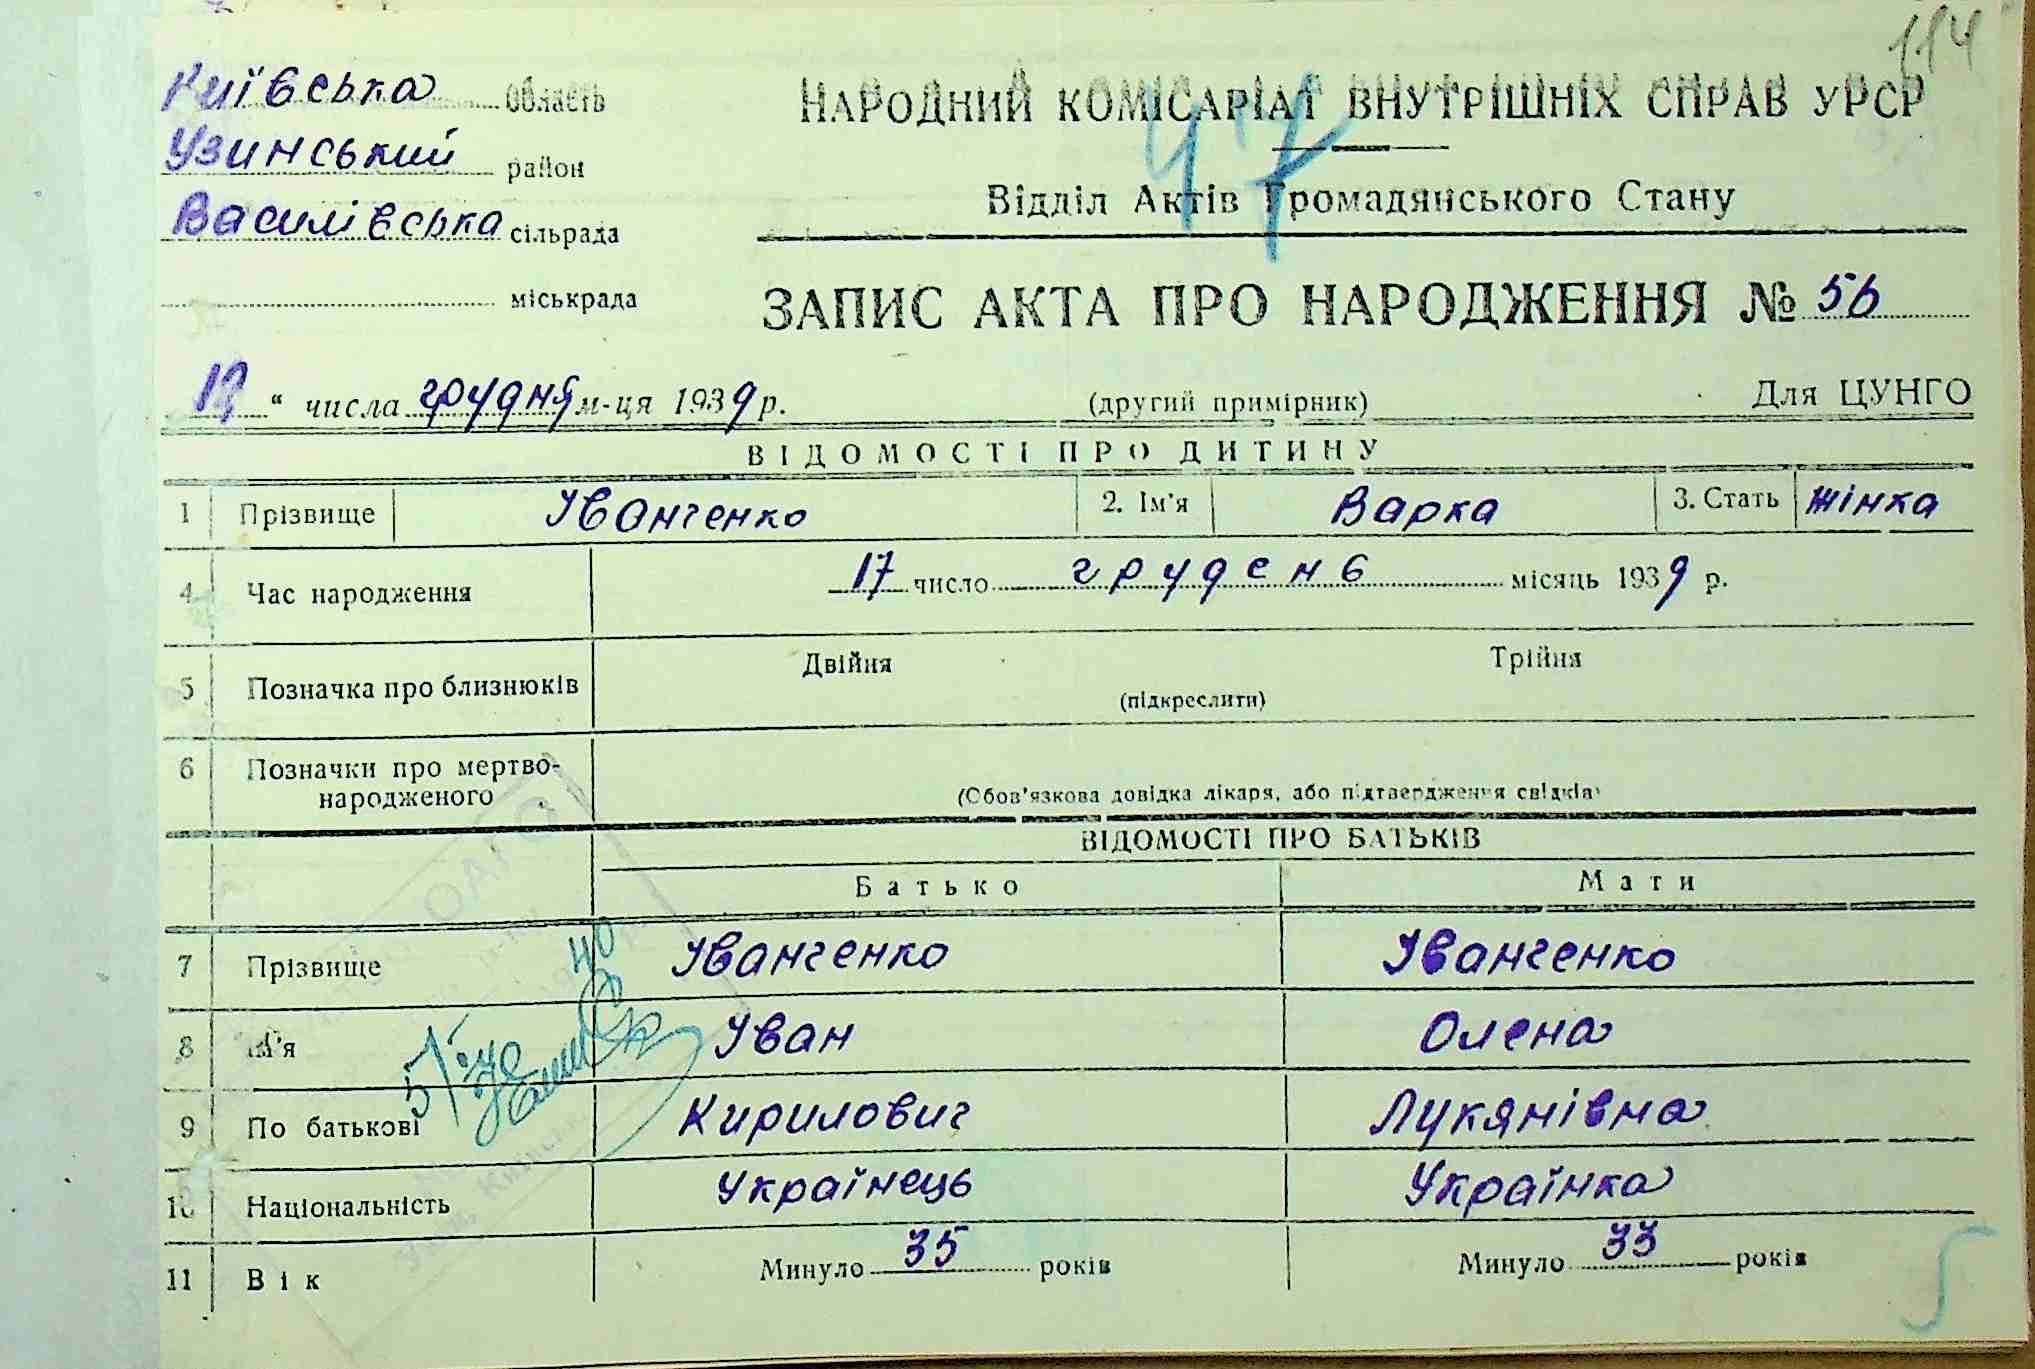 114
Київська область
Узинський район
Василівська сільрада
міськрада
НАРОДНИЙ КОМІСАРІАТ ВНУТРІШНІХ СПРАВ УРСР
47
Відділ Актів Громадянського Стану
ЗАПИС АКТА ПРО НАРОДЖЕННЯ № 56
" числа грудня м-ця 1939 р. (другий примірник) Для ЦУНГО
ВІДОМОСТІ ПРО ДИТИНУ
1 Прізвище Іванченко 2. Ім'я Варка 3. Стать жінка
4 Час народження 17 число грудень місяць 1939 р.
5 Позначка про близнюків Двійня Трійня
(підкреслити)
6 Позначки про мертво-
народженого (Обов'язкова довідка лікаря, або підтвердження свідків)
ВІДОМОСТІ ПРО БАТЬКІВ
Батько Мати
7 Прізвище Іванченко Іванченко
8 Ім'я Іван Олена
9 По батькові Кирилович Лукянівна
10 Національність Українець Українка
11 Вік Минуло 35 років Минуло 33 років